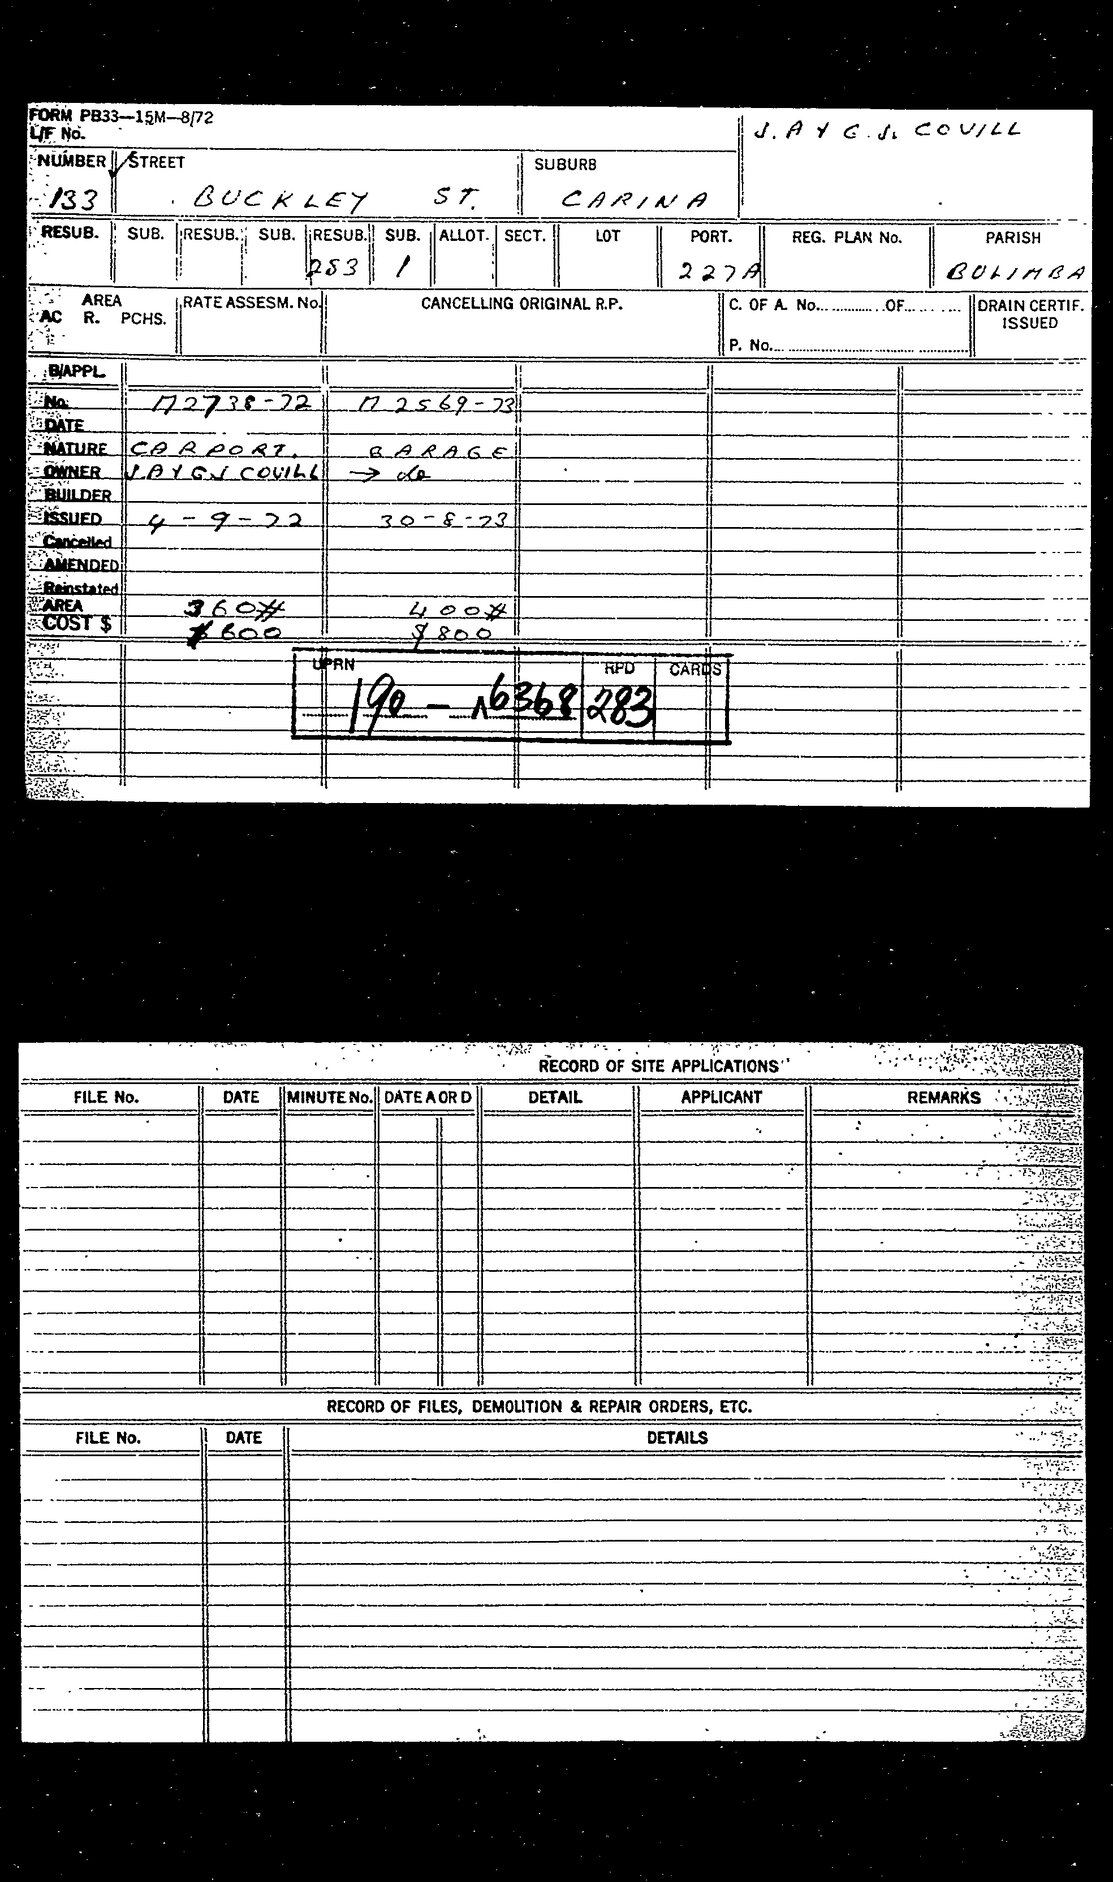 FORM PB33—15M—8/72
L/F No.
J. A Y G. J. COVILL
NUMBER STREET SUBURB
133 BUCKLEY ST. CARINA
RESUB. SUB. RESUB. SUB. RESUB. SUB. ALLOT. SECT. LOT PORT. REG. PLAN No. PARISH
283 1 227A BULIMBA
AREA RATE ASSESM. No. CANCELLING ORIGINAL R.P. C. OF A. No. OF DRAIN CERTIF.
AC R. PCHS. ISSUED
P. No.
B/APPL.
No. M2738-72 M2569-73
DATE
NATURE CARPORT. GARAGE
OWNER J.A Y G.J COVILL → do
BUILDER
ISSUED 4-9-72 30-8-73
Cancelled
AMENDED
Reinstated
AREA 360# 400#
COST $ $600 $800
UPRN RPD CARDS
190 — 16368 283
RECORD OF SITE APPLICATIONS
FILE No. DATE MINUTE No. DATE A OR D DETAIL APPLICANT REMARKS
RECORD OF FILES, DEMOLITION & REPAIR ORDERS, ETC.
FILE No. DATE DETAILS